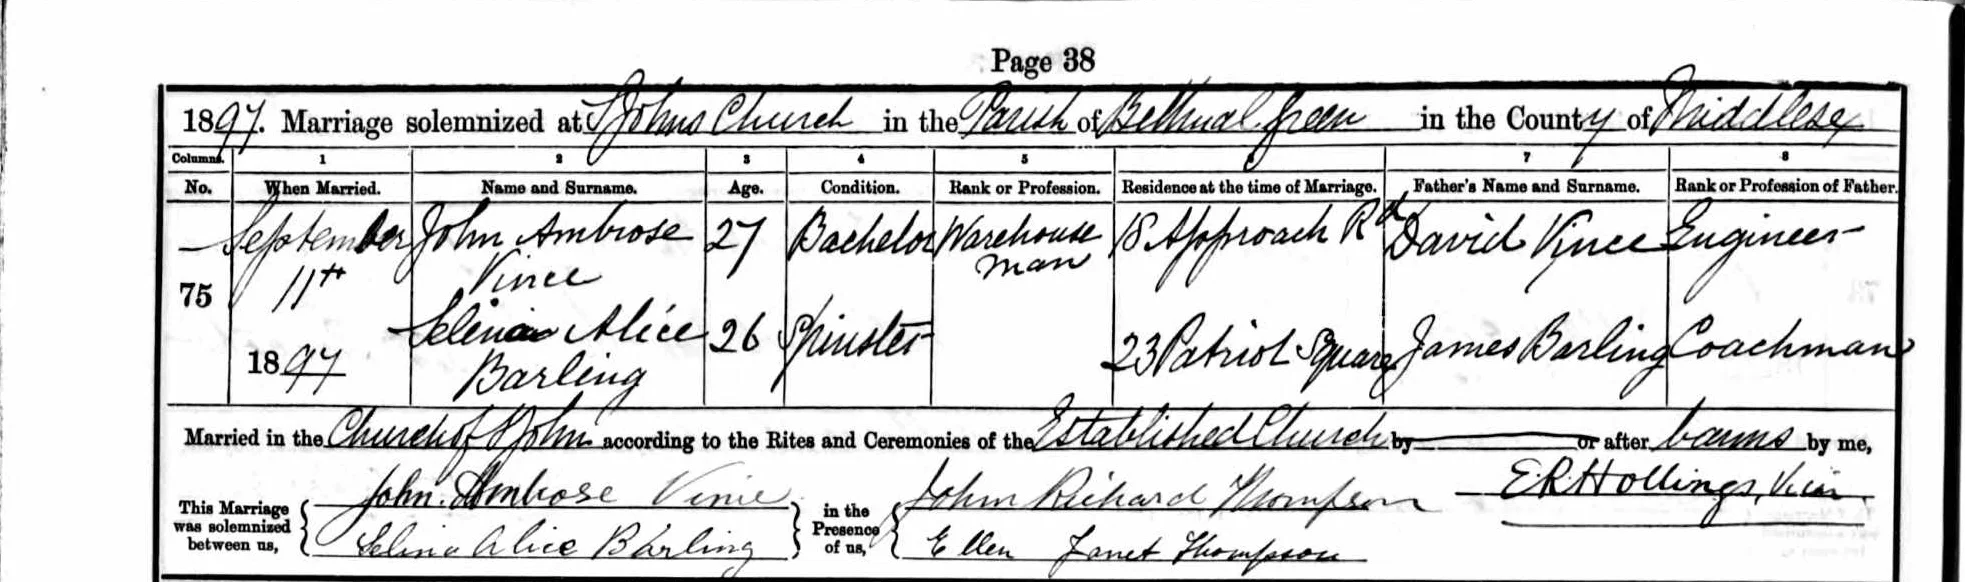 Page 38
1897. Marriage solemnized at St Johns Church in the Parish of Bethnal Green in the County of Middlesex
Columns. 1 2 3 4 5 6 7 8
No. When Married. Name and Surname. Age. Condition. Rank or Profession. Residence at the time of Marriage. Father's Name and Surname. Rank or Profession of Father.
September John Ambrose 27 Bachelor Warehouse 18 Approach Rd David Vince Engineer
11th Vince man
75
Selina Alice 26 Spinster 23 Patriot Square James Barling Coachman
1897 Barling
Married in the Church of St John according to the Rites and Ceremonies of the Established Church by or after banns by me,
This Marriage was solemnized between us, John Ambrose Vince in the Presence of us, John Richard Thompson E R Hollings, Vicar
Selina Alice Barling Ellen Janet Thompson